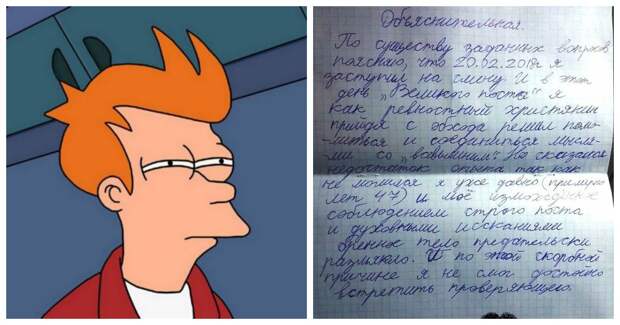 Объяснительная.
По существу заданных вопросов
поясняю, что 20.02.2018г я
заступил на смену. И в этот
день „Великого поста" я
как ревностный христянин
прийдя с обхода решил помо-
-литься и соединиться мысля-
ми со „всевышним". Но сказался
недостаток опыта так как
не молился я уже давно (примерно
лет 47) и моё измождённое
соблюдением строго поста
и духовными исканиями
бренное тело предательски
размякло. И по этой скорбной
причине я не смог достойно
встретить проверяющего.